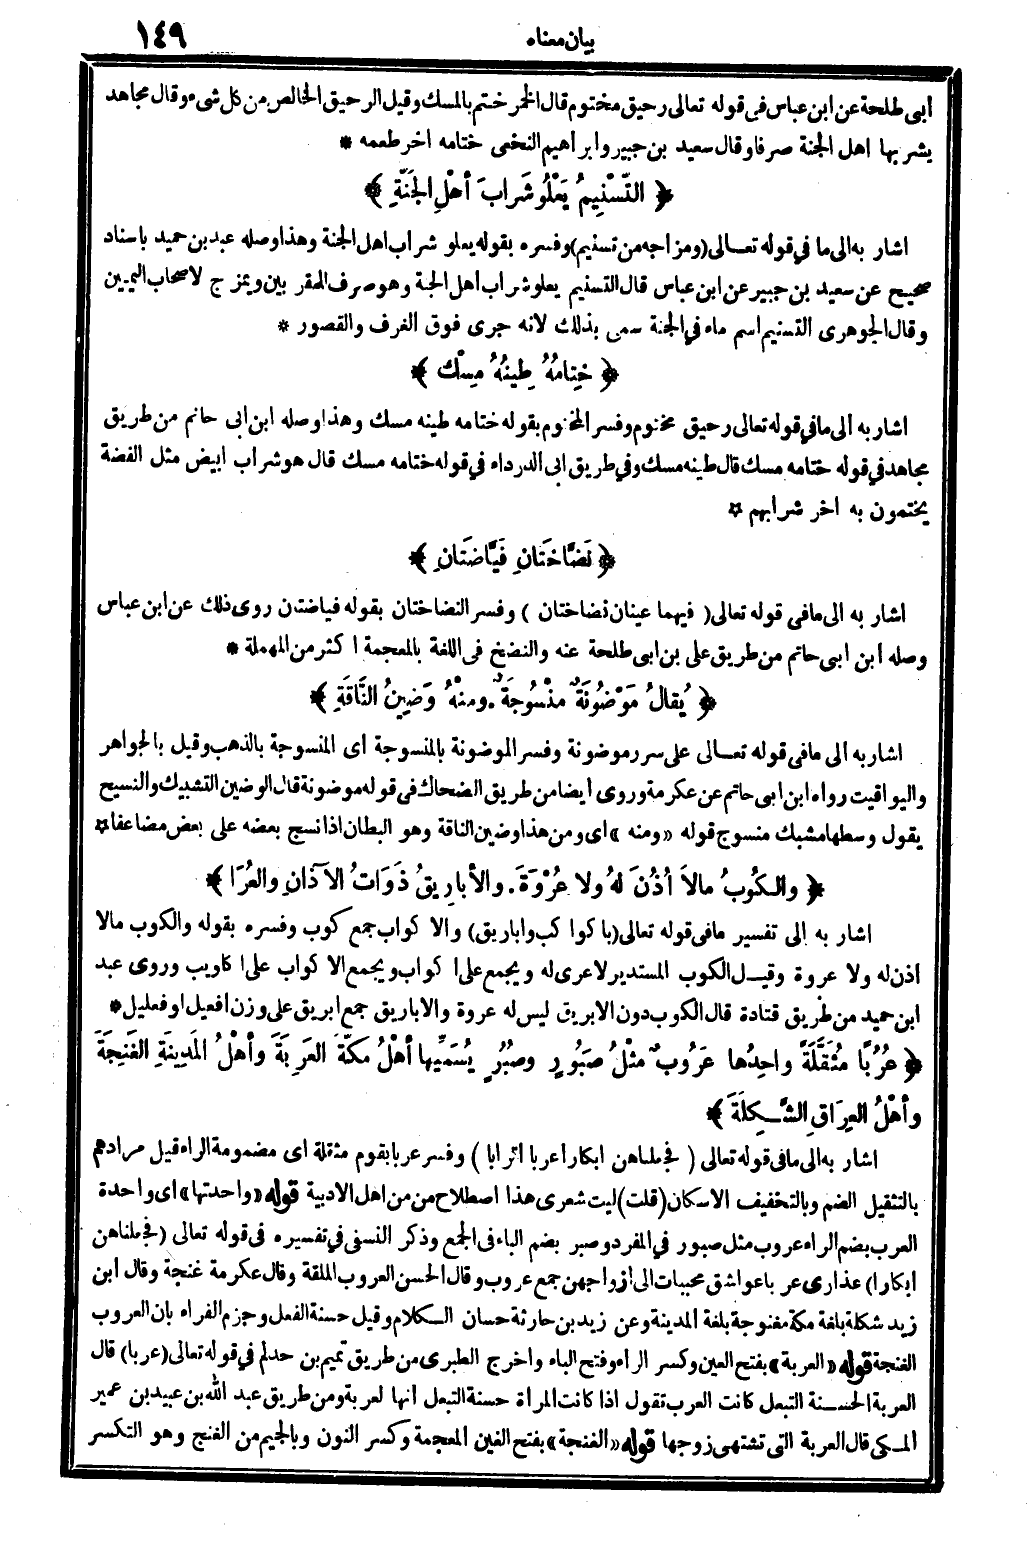 بيان معناه ١٤٩
أبى طلحة عن ابن عباس فى قوله تعالى رحيق مختوم قال الخمر ختم بالمسك وقيل الرحيق الخالص من كل شىء وقال مجاهد
يشربها اهل الجنة صرفا وقال سعيد بن جبير وابراهيم النخعى ختامه اخر طعمه *
﴿ التَّسْنِيمُ يَعْلُو شَرَابَ أهْلِ الجَنَّةِ ﴾
اشار به الى ما فى قوله تعالى (ومزاجه من تسنيم) وفسره بقوله يعلو شراب اهل الجنة وهذا وصله عبد بن حميد باسناد
صحيح عن سعيد بن جبير عن ابن عباس قال التسنيم يعلو شراب اهل الجنة وهو صرف للمقربين ويمزج لاصحاب اليمين
وقال الجوهرى التسنيم اسم ماء فى الجنة سمى بذلك لانه جرى فوق الغرف والقصور *
﴿ خِتَامُهُ طِينُهُ مِسْك ﴾
اشار به الى ما فى قوله تعالى رحيق مختوم وفسر المختوم بقوله ختامه طينه مسك وهذا وصله ابن ابى حاتم من طريق
مجاهد فى قوله ختامه مسك قال طينه مسك وفى طريق ابى الدرداء فى قوله ختامه مسك قال هو شراب ابيض مثل الفضة
يختمون به اخر شرابهم *
﴿ نَضَّاخَتَانِ فَيَّاضَتَانِ ﴾
اشار به الى ما فى قوله تعالى ( فيهما عينان نضاختان ) وفسر النضاختان بقوله فياضتان روى ذلك عن ابن عباس
وصله ابن ابى حاتم من طريق على بن ابى طلحة عنه والنضخ فى اللغة بالمعجمة اكثر من المهملة *
﴿ يُقالُ مَوْضُونَةٌ مَنْسُوجَةٌ . ومِنْهُ وَضِينُ النَّاقَةِ ﴾
اشار به الى ما فى قوله تعالى على سرر موضونة وفسر الموضونة بالمنسوجة اى المنسوجة بالذهب وقيل بالجواهر
واليواقيت رواه ابن ابى حاتم عن عكرمة وروى أيضا من طريق الضحاك فى قوله موضونة قال الوضين التشبيك والنسيج
يقول وسطها مشبك منسوج قوله «ومنه» اى ومن هذا وضين الناقة وهو البطان اذا نسج بعضه على بعض مضاعفا *
﴿ والكُوبُ مالاَ أُذُنَ لهُ ولا عُرْوَةَ . والأبارِيقُ ذَوَاتُ الآذَانِ والعُرَا ﴾
اشار به الى تفسير ما فى قوله تعالى (باكواكب واباريق) والاكواب جمع كوب وفسره بقوله والكوب مالا
اذن له ولا عروة وقيل الكوب المستدير لاعرى له ويجمع على اكواب ويجمع الاكواب على اكاويب وروى عبد
ابن حميد من طريق قتادة قال الكوب دون الابريق ليس له عروة والاباريق جمع ابريق على وزن افعيل او فعليل *
﴿ عُرُبًا مُثَقَّلَةً واحِدُها عَرُوبٌ مثْلُ صَبُورٍ وصُبُرٍ يُسَمِّيها أهْلُ مكّةَ العَرِبَةَ وأهْلُ المَدِينَةِ الغَنِجَةَ
وأهْلُ العِرَاقِ الشَّكِلَةَ ﴾
اشار به الى ما فى قوله تعالى ( فجعلناهن ابكارا عربا اترابا ) وفسر عربا بقوم مثقلة اى مضمومة الراء قيل مرادهم
بالتثقيل الضم وبالتخفيف الاسكان (قلت) ليت شعرى هذا اصطلاح من من اهل الادبية قوله «واحدتها» اى واحدة
العرب بضم الراء عروب مثل صبور فى المفرد وصبر بضم الباء فى الجمع وذكر النسفى فى تفسيره فى قوله تعالى (فجعلناهن
ابكارا) عذارى عربا عواشق محببات الى ازواجهن جمع عروب وقال الحسن العروب الملقة وقال عكرمة غنجة وقال ابن
زيد شكلة بلغة مكة مغنوجة بلغة المدينة وعن زيد بن حارثة حسان الكلام وقيل حسنة الفعل وجزم الفراء بان العروب
الغنجة قوله «العربة» بفتح العين وكسر الراء وفتح الباء واخرج الطبرى من طريق تميم بن حدلم فى قوله تعالى (عربا) قال
العربة الحسنة التبعل كانت العرب تقول اذا كانت المرأة حسنة التبعل انها لعربة ومن طريق عبد الله بن عبيد بن عمير
المكى قال العربة التى تشتهى زوجها قوله «الغنجة» بفتح الغين المعجمة وكسر النون وبالجيم من الغنج وهو التكسر